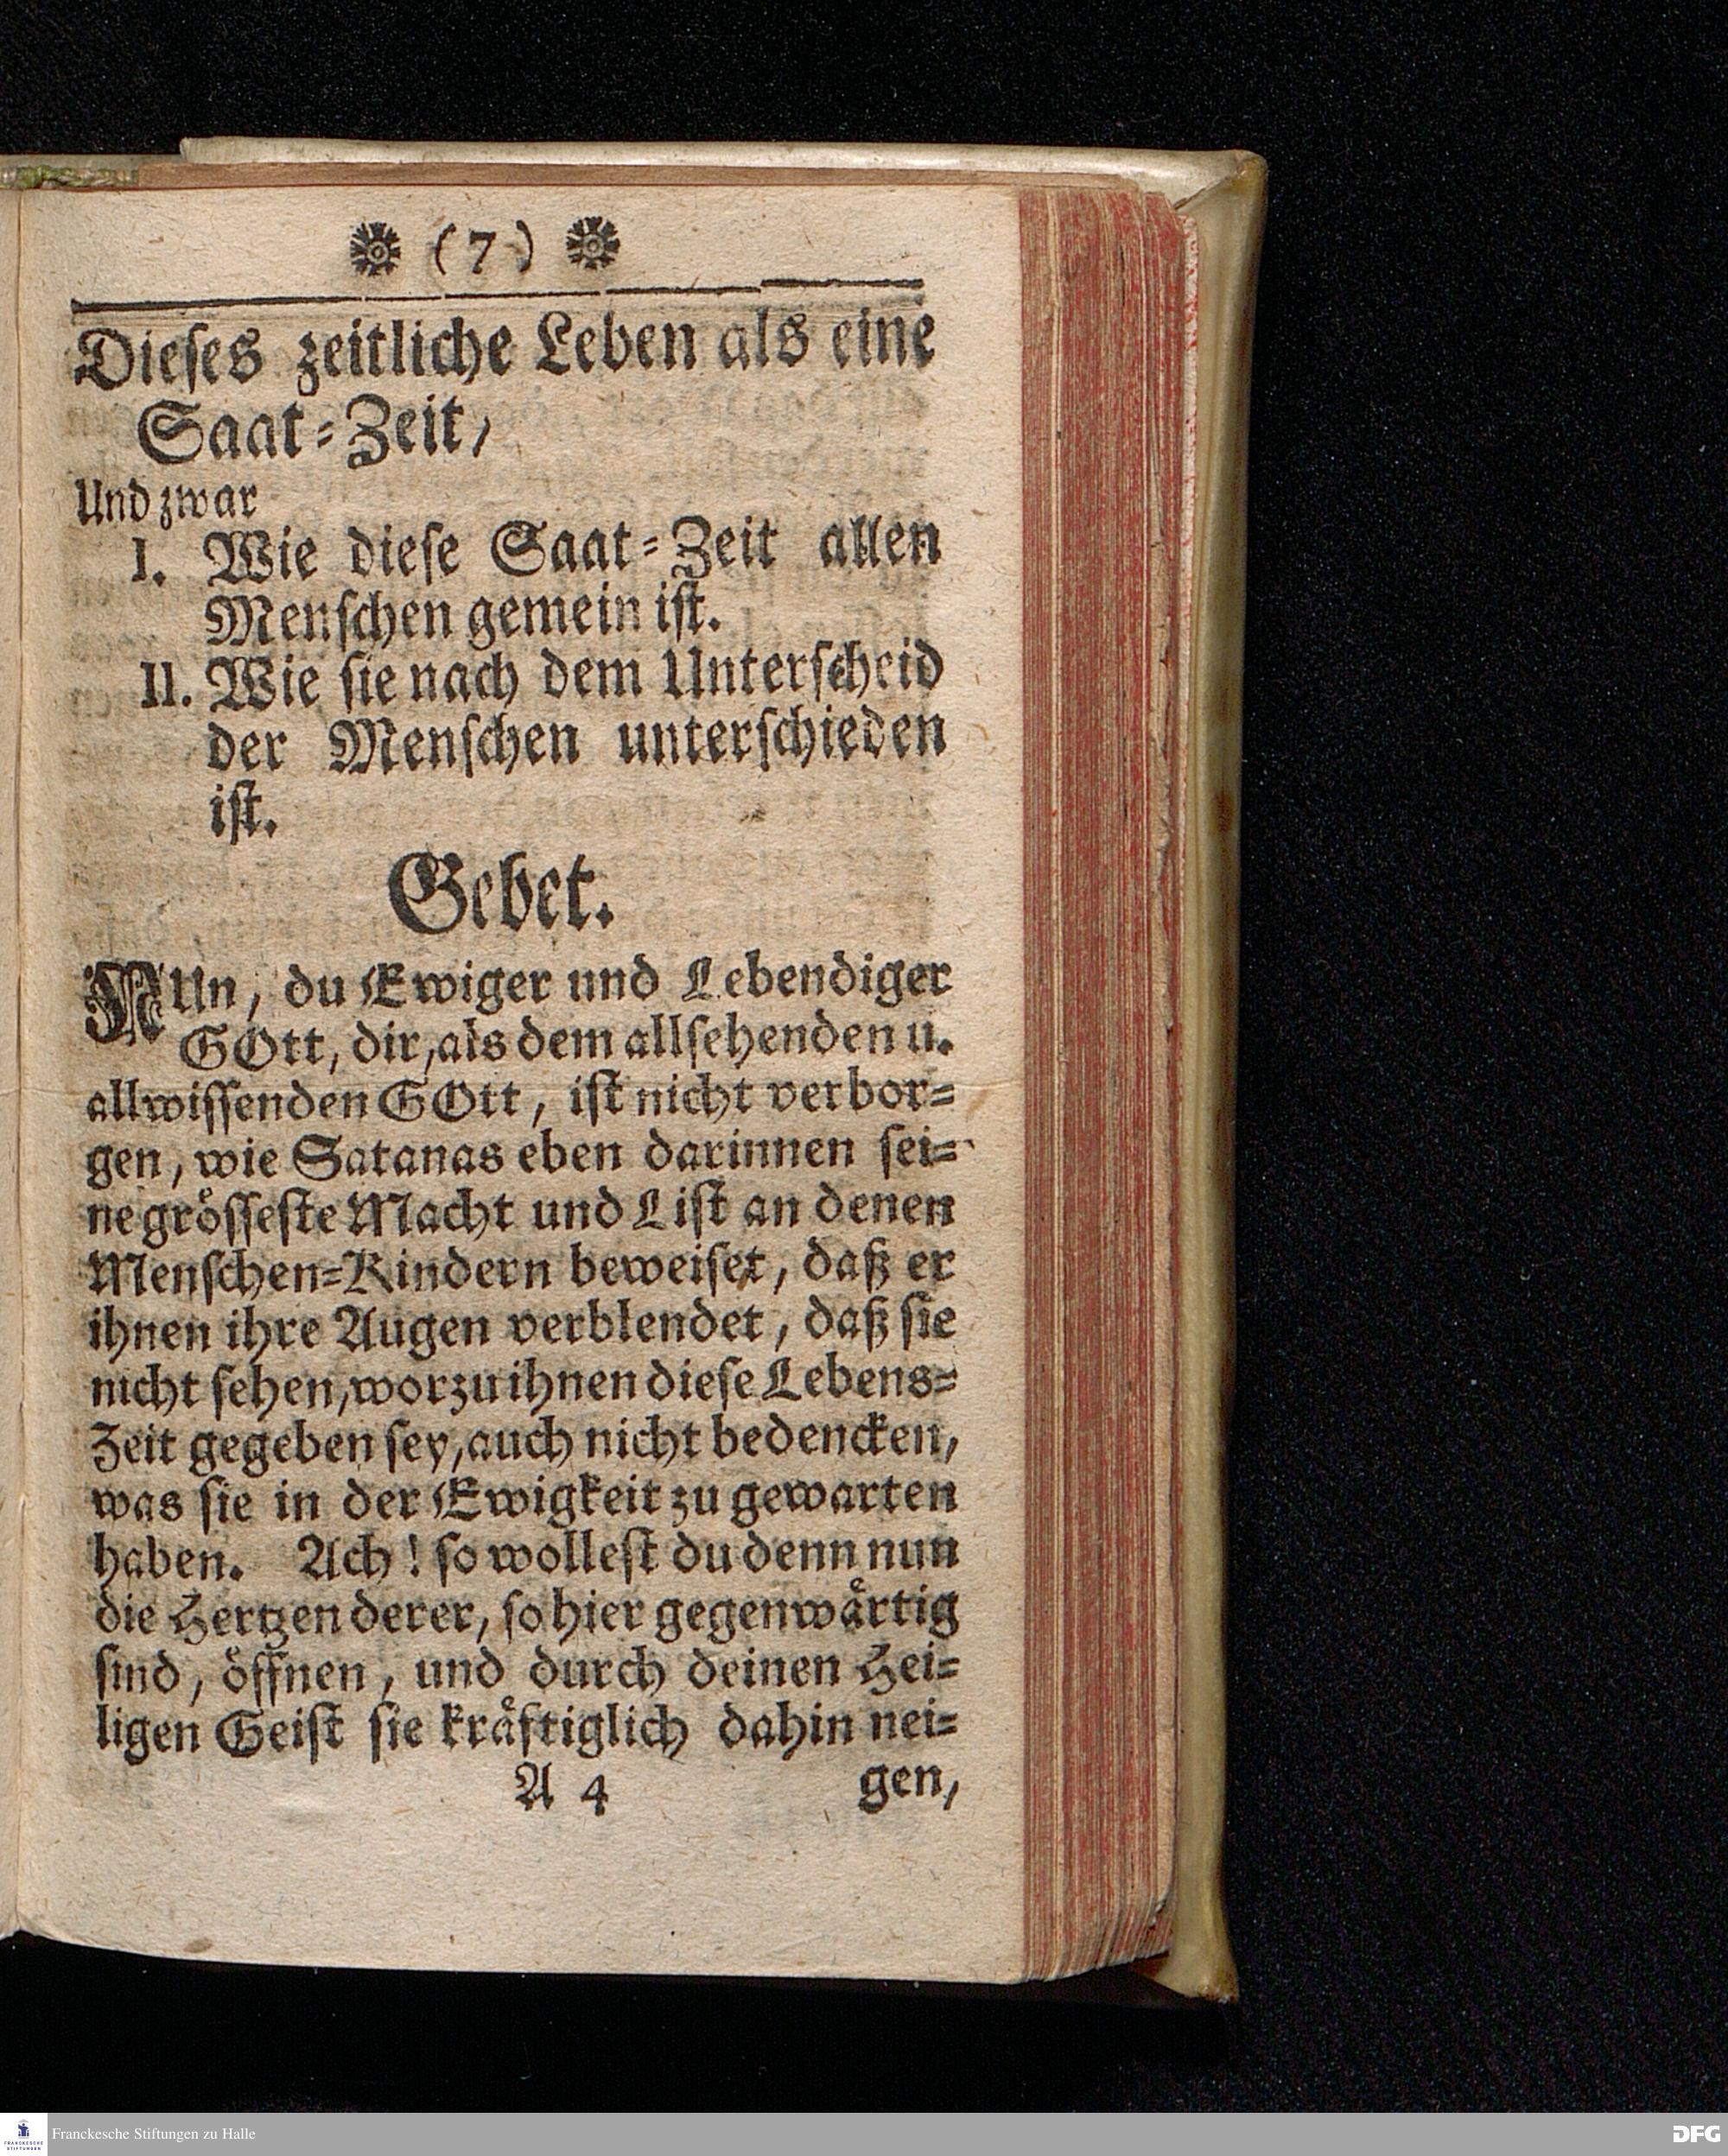 ❋ (7) ❋
Dieses zeitliche Leben als eine
Saat-Zeit,
Und zwar
I. Wie diese Saat-Zeit allen
Menschen gemein ist.
II. Wie sie nach dem Unterscheid
der Menschen unterschieden
ist.
Gebet.
NUn, du Ewiger und Lebendiger
GOtt, dir, als dem allsehenden u.
allwissenden GOtt, ist nicht verbor-
gen, wie Satanas eben darinnen sei-
ne grösseste Macht und List an denen
Menschen-Kindern beweiset, daß er
ihnen ihre Augen verblendet, daß sie
nicht sehen, worzu ihnen diese Lebens-
Zeit gegeben sey, auch nicht bedencken,
was sie in der Ewigkeit zu gewarten
haben. Ach! so wollest du denn nun
die Hertzen derer, so hier gegenwärtig
sind, öffnen, und durch deinen Hei-
ligen Geist sie kräftiglich dahin nei-
A 4 gen,
FRANCKESCHE
STIFTUNGEN
Franckesche Stiftungen zu Halle
DFG